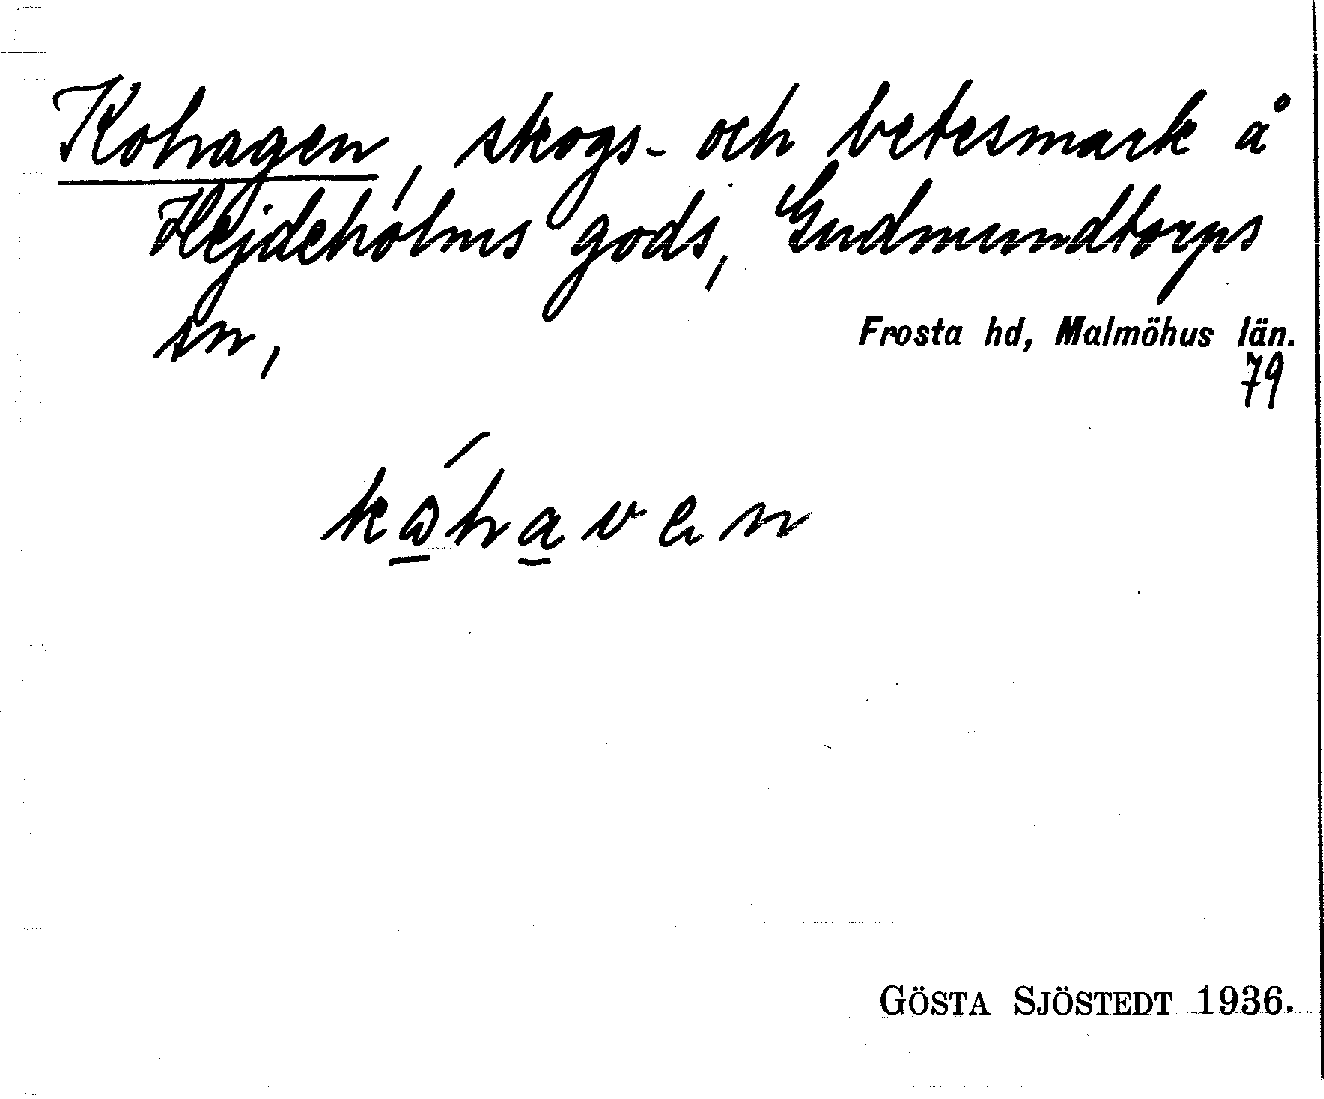 Kohagen, skogs- och betesmark å
Hejdeholms gods, Gudmundtorps
sn,
Frosta hd, Malmöhus län.
79
GÖSTA SJÖSTEDT 1936.